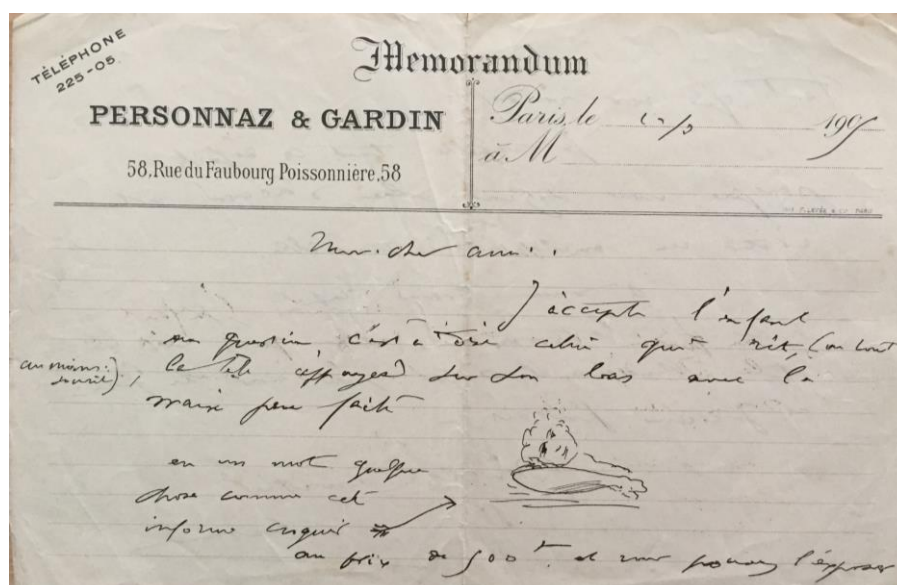 TÉLÉPHONE
225-05.
Memorandum
PERSONNAZ & GARDIN
58, Rue du Faubourg Poissonnière, 58
Paris, le 190
à M
Mon cher ami.
J'accepte l'enfant
en question c'est à dire celui qui rit, (ou tout
au moins
sourit), la tête appuyée sur son bras avec la
main peu faite
en un mot quelque
chose comme cet
informe croquis
au prix de 500 f. et vous pouvez l'exposer